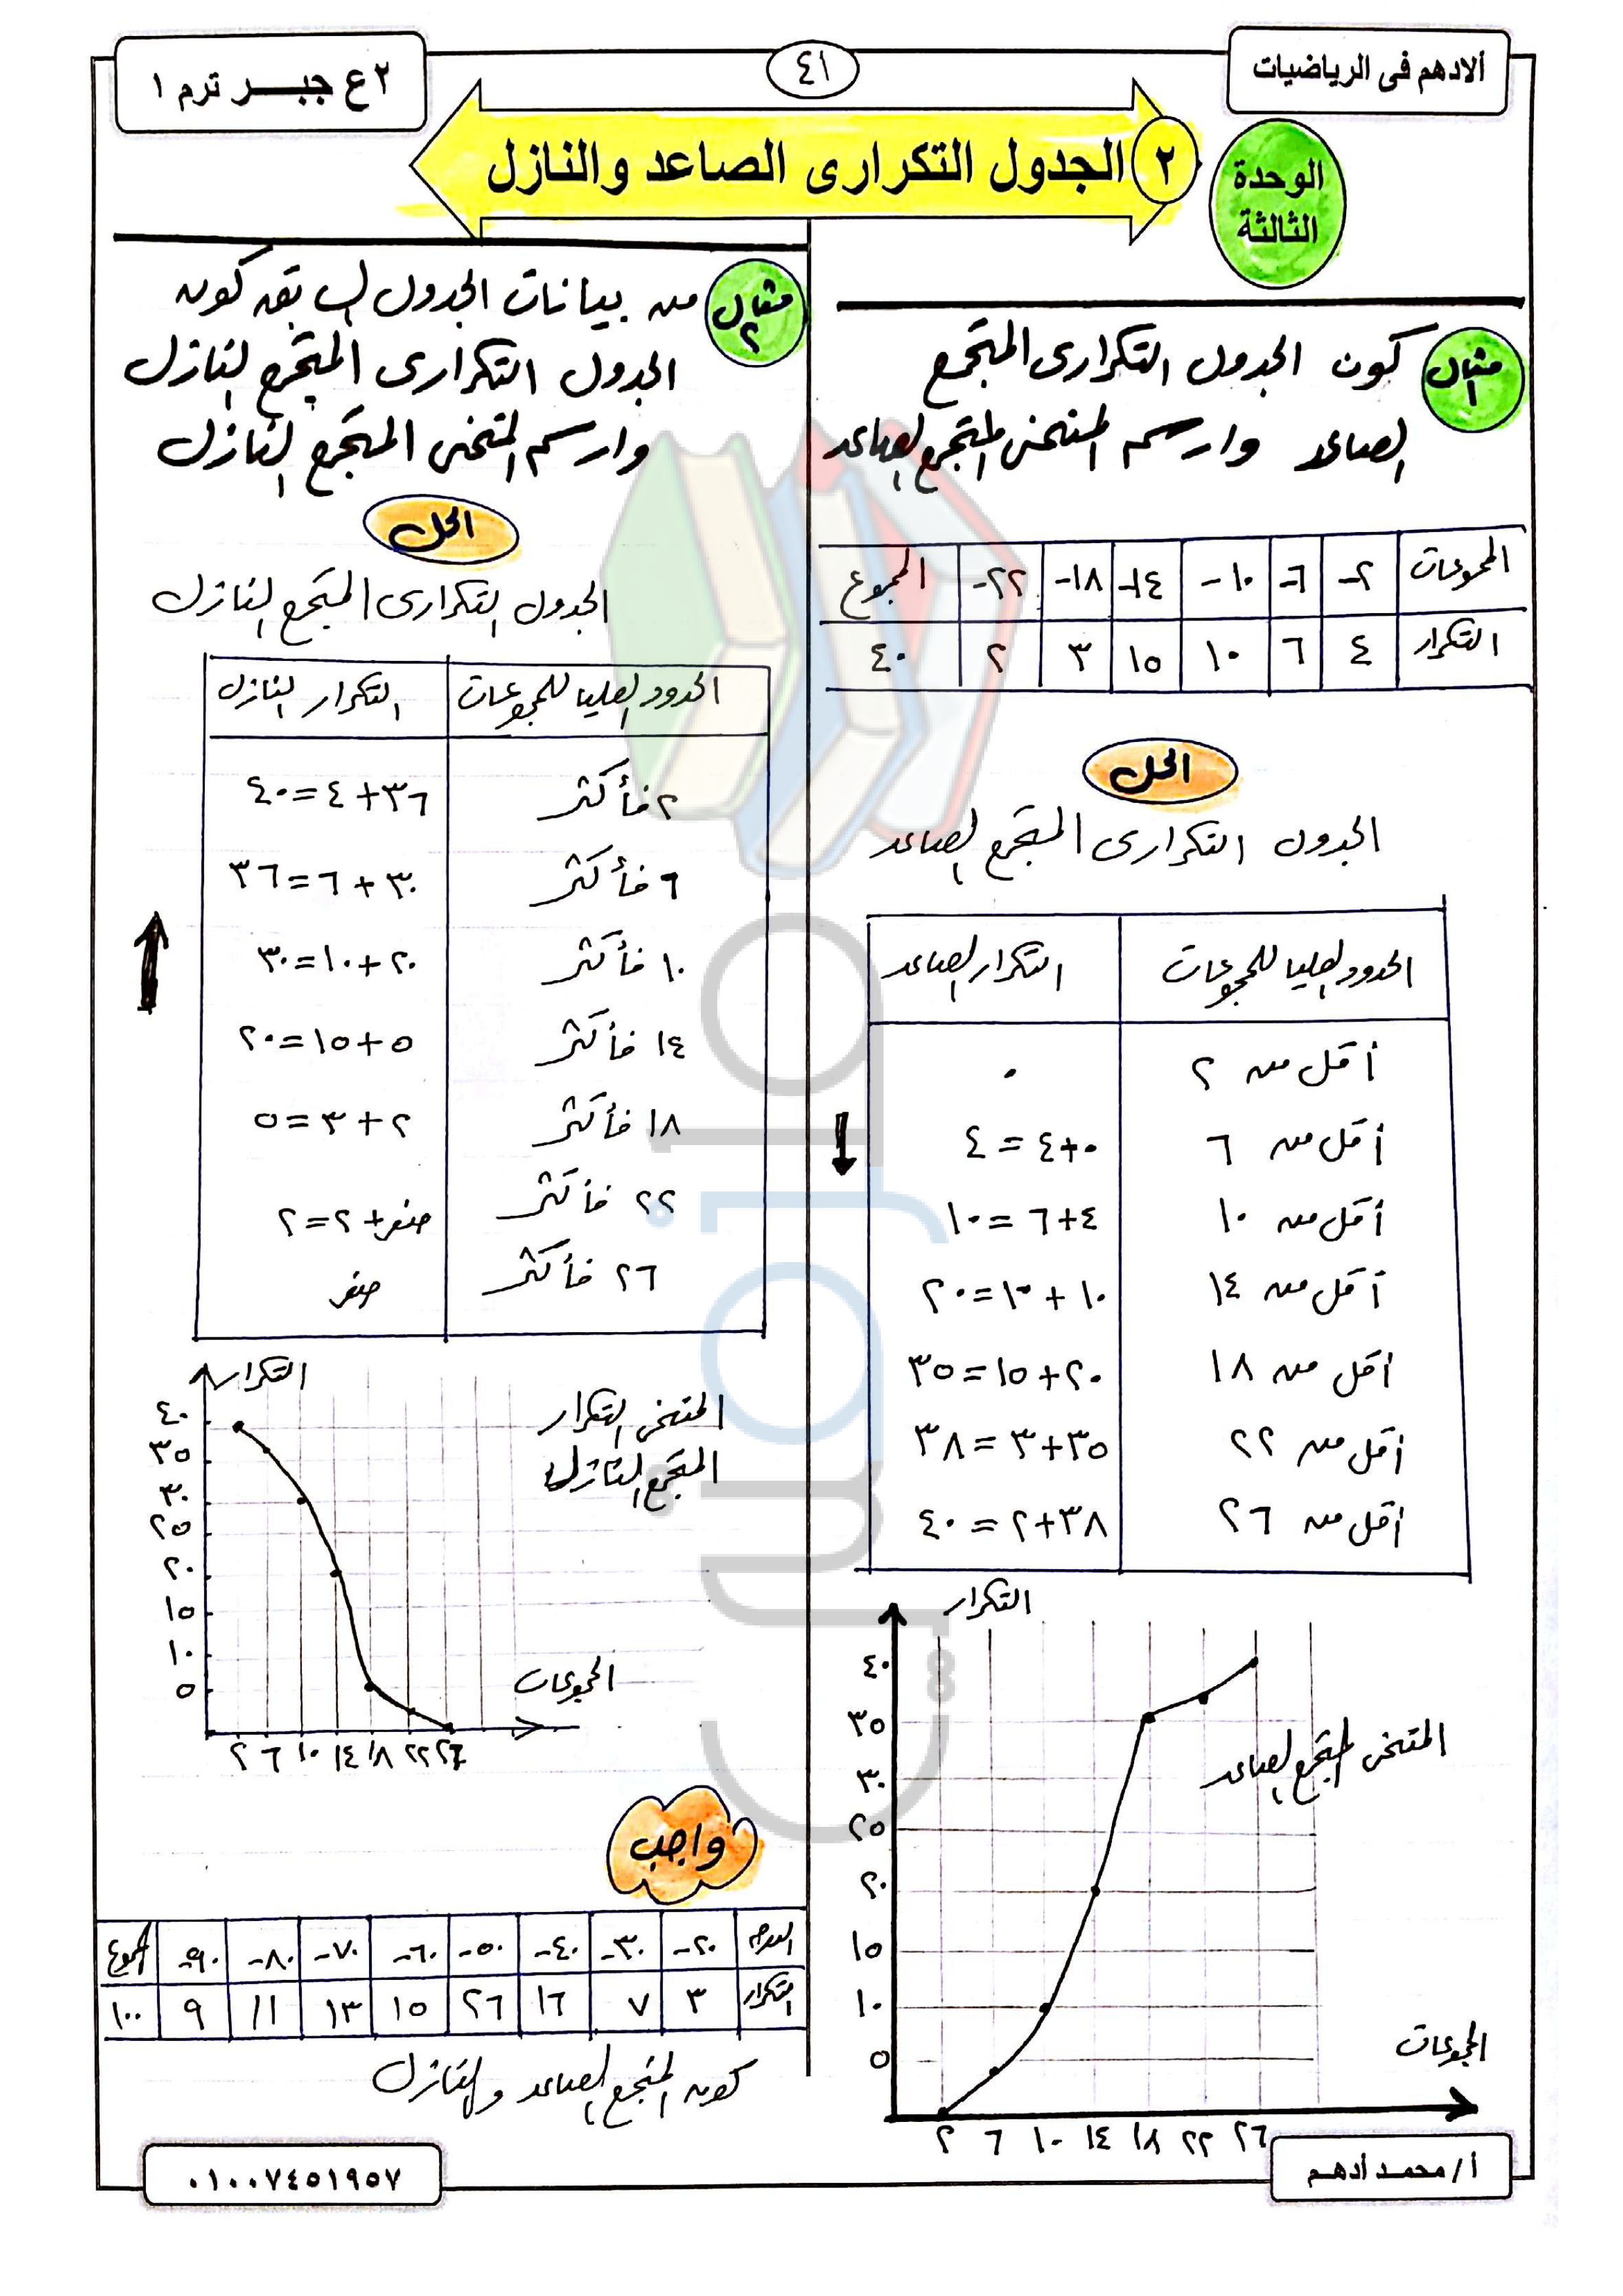 ألادهم فى الرياضيات
٤١
٢ع جبر ترم ١
الوحدة
الثالثة
٢ الجدول التكرارى الصاعد والنازل
مثال ١ كون الجدول التكرارى المتجمع
الصاعد وارسم المنحنى المتجمع الصاعد
المجموعات ٢- ٦- ١٠- ١٤- ١٨- ٢٢- المجموع
التكرار ٤ ٦ ١٠ ١٥ ٣ ٢ ٤٠
الحل
الجدول التكرارى المتجمع الصاعد
الحدود العليا للمجموعات التكرار الصاعد
أقل من ٢ ٠
أقل من ٦ ٠+٤ = ٤
أقل من ١٠ ٤+٦ = ١٠
أقل من ١٤ ١٠ + ١٠ = ٢٠
أقل من ١٨ ٢٠ + ١٥ = ٣٥
أقل من ٢٢ ٣٥+٣ = ٣٨
أقل من ٢٦ ٣٨+٢ = ٤٠
التكرار
٤٠
٣٥
٣٠
٢٥
٢٠
١٥
١٠
٥
المنحنى المتجمع الصاعد
المجموعات
٢ ٦ ١٠ ١٤ ١٨ ٢٢ ٢٦
مثال ٢ من بيانات الجدول السابق كون
الجدول التكرارى المتجمع النازل
وارسم المنحنى المتجمع النازل
الحل
الجدول التكرارى المتجمع النازل
الحدود العليا للمجموعات التكرار النازل
٢ فأكثر ٣٦+٤ = ٤٠
٦ فأكثر ٣٠+٦ = ٣٦
١٠ فأكثر ٢٠+١٠ = ٣٠
١٤ فأكثر ٥+١٥ = ٢٠
١٨ فأكثر ٢+٣ = ٥
٢٢ فأكثر صفر+٢ = ٢
٢٦ فأكثر صفر
التكرار
٤٠
٣٥
٣٠
٢٥
٢٠
١٥
١٠
٥
المنحنى التكرار
المتجمع النازل
المجموعات
٢ ٦ ١٠ ١٤ ١٨ ٢٢ ٢٦
واجب
٢٠- ٣٠- ٤٠- ٥٠- ٦٠- ٧٠- ٨٠- ٩٠- المجموع
التكرار ٣ ٧ ١٦ ٢٦ ١٥ ١٣ ١١ ٩ ١٠٠
كون المتجمع الصاعد والنازل
أ/ محمد أدهم
٠١٠٠٧٤٥١٩٥٧